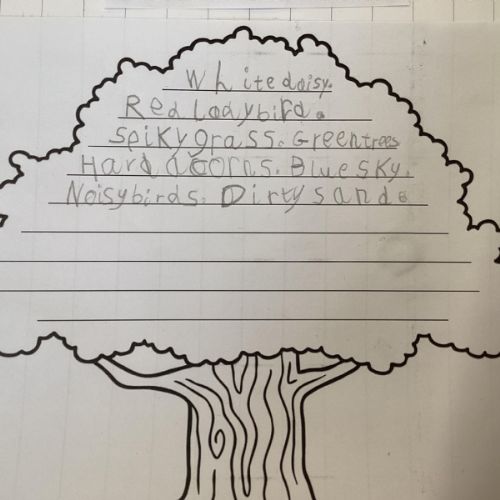 White daisy.
Red Ladybird.
Spiky grass. Green trees
Hard acorns. Blue sky.
Noisy birds. Dirty sand.